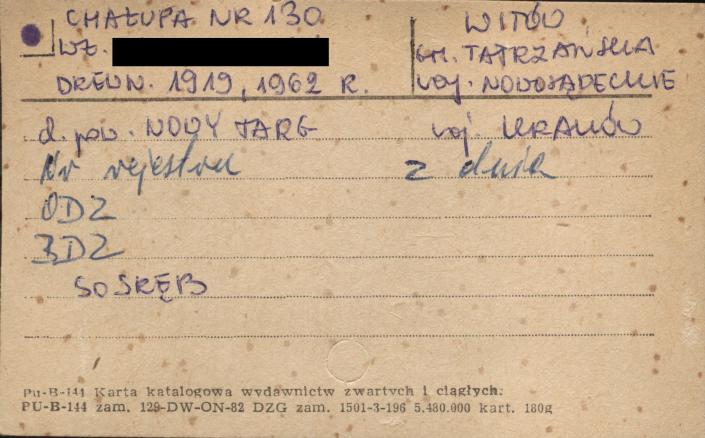 CHAŁUPA NR 130
WITÓW
WŁ.
GM. TATRZAŃSKA
DREWN. 1919, 1962 R.
WOJ. NOWOSĄDECKIE
d. pow. NOWY TARG
woj. KRAKÓW
Nr rejestru
z dnia
ODZ
BDZ
SOSRĘB
PU-B-144 Karta katalogowa wydawnictw zwartych i ciągłych.
PU-B-144 zam. 129-DW-ON-82 DZG zam. 1501-3-196 5.480.000 kart. 180g